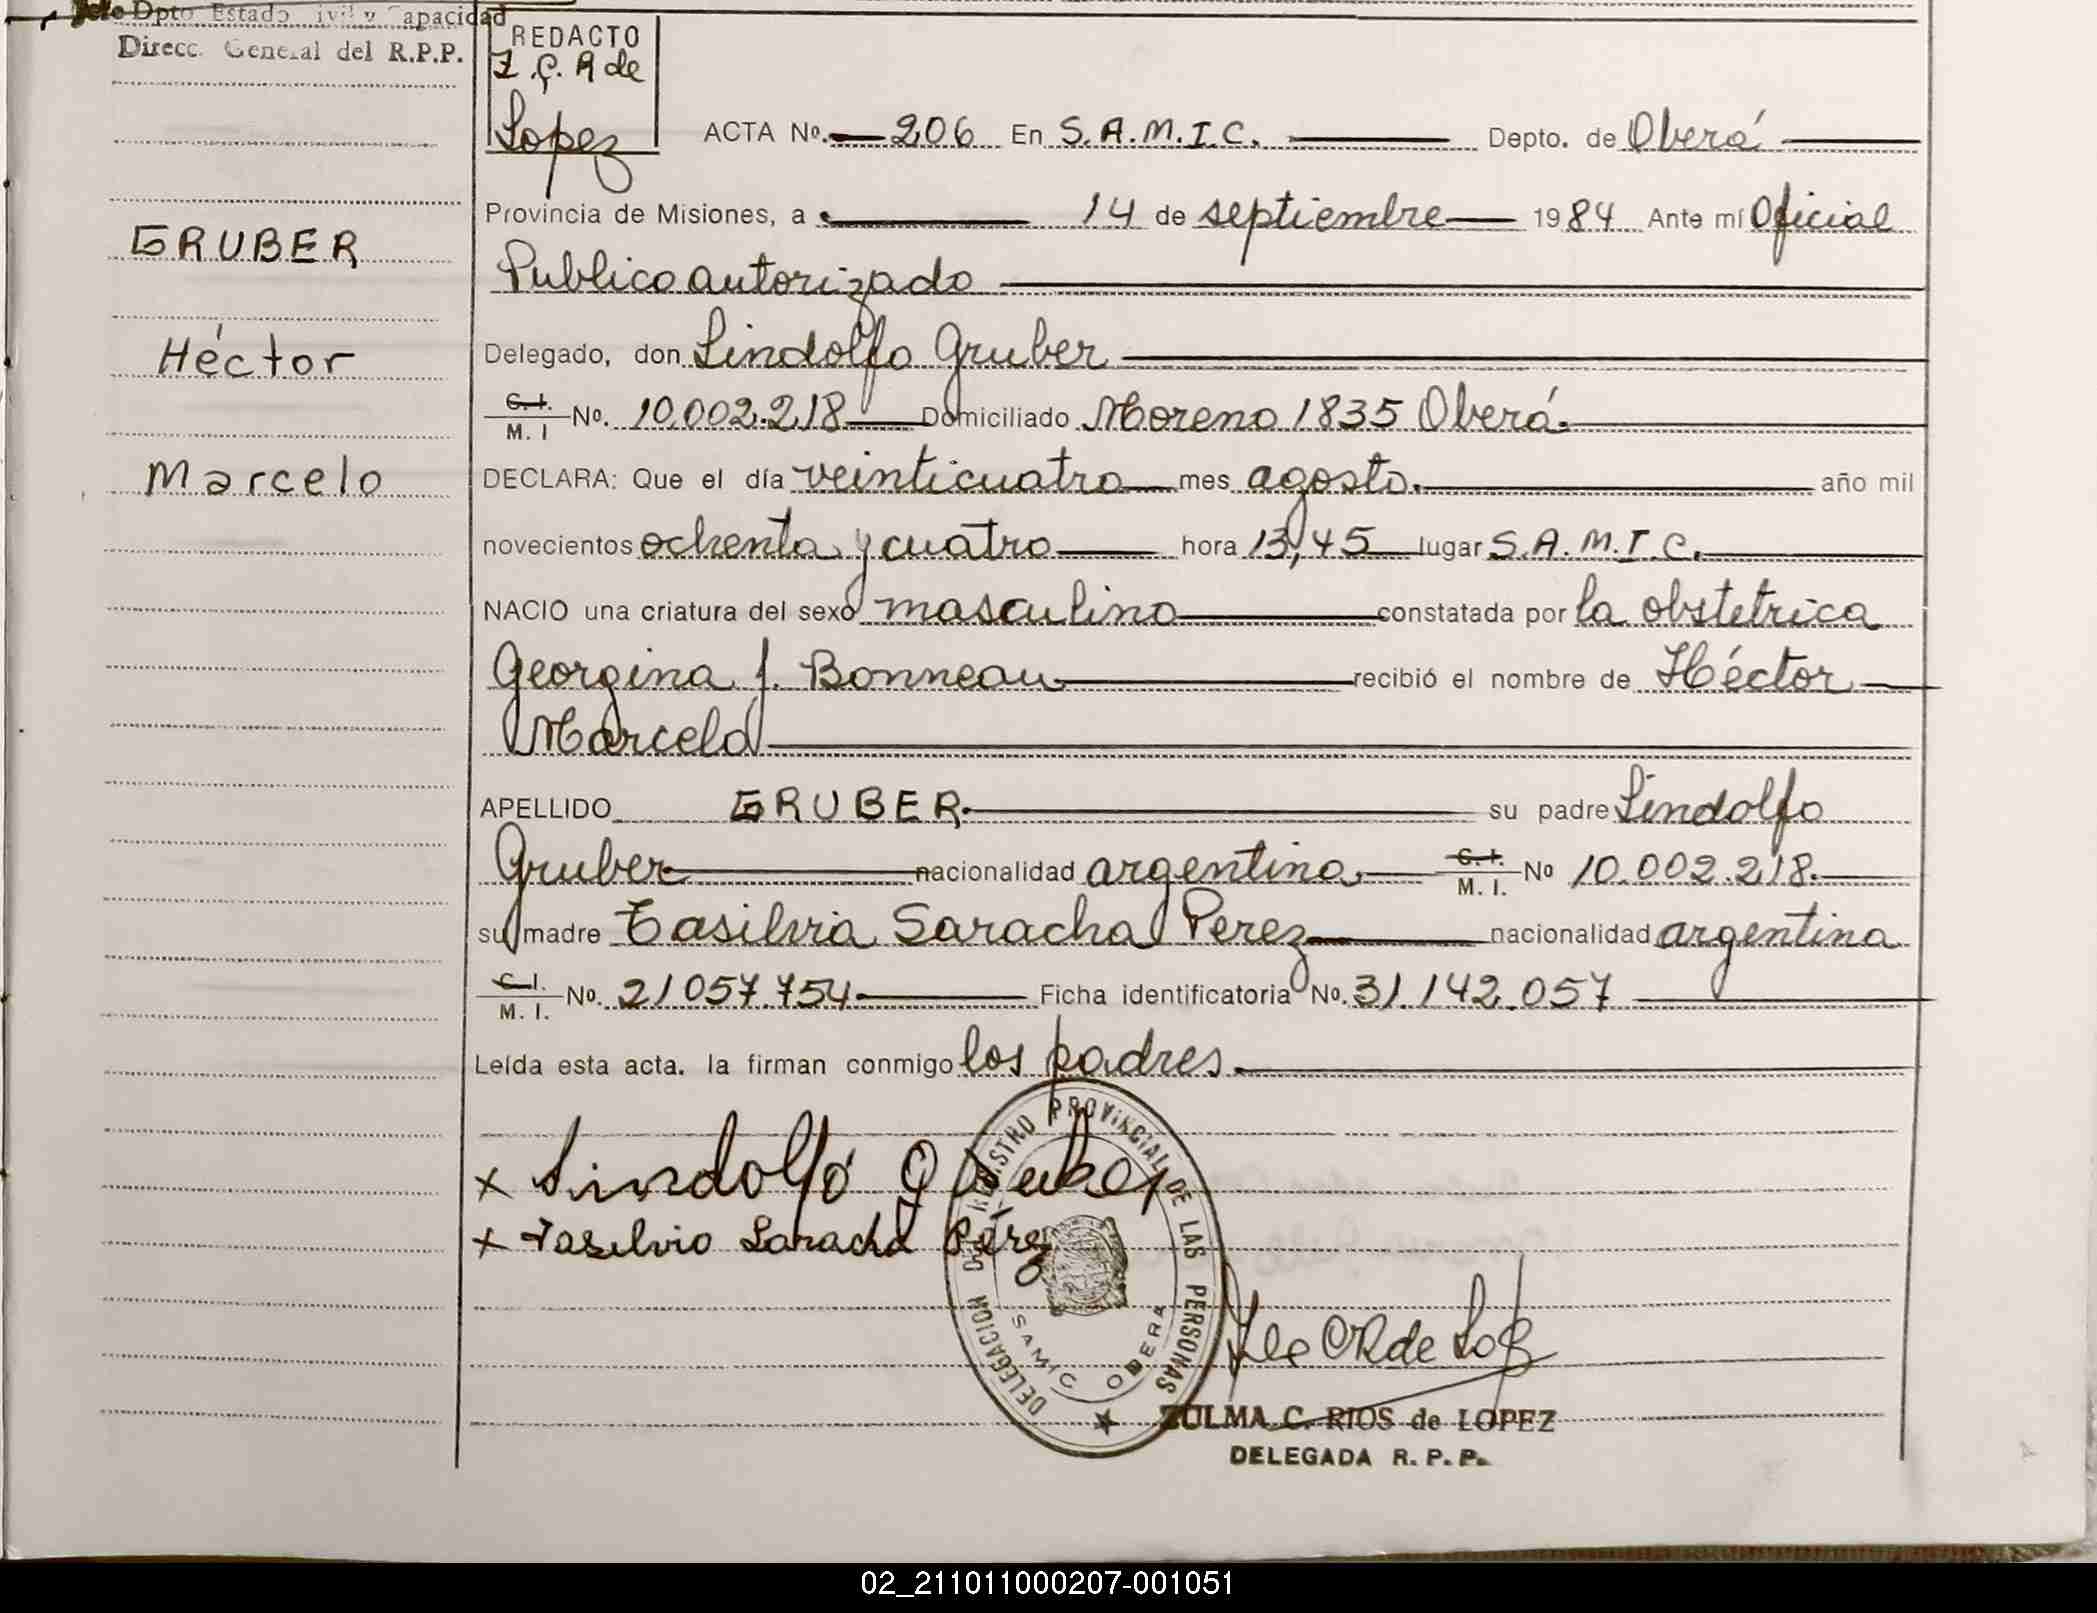 Jefe Dpto Estado Civil y Capacidad
Direcc. General del R.P.P.
REDACTO
Z. C. R de
Lopez
ACTA No. 206 En S.A.M.I.C. Depto. de Oberá
Provincia de Misiones, a 14 de septiembre 1984 Ante mí Oficial
Publico autorizado
GRUBER
Delegado, don Lindolfo Gruber
Héctor
C. I. / M. I No. 10.002.218 Domiciliado Moreno 1835 Oberá.
DECLARA: Que el día veinticuatro mes agosto. año mil
Marcelo
novecientos ochenta y cuatro hora 13,45 lugar S.A.M.I.C.
NACIO una criatura del sexo masculino constatada por la obstetrica
Georgina J. Bonneau recibió el nombre de Héctor
Marcelo
APELLIDO GRUBER su padre Lindolfo
Gruber nacionalidad argentina C. I. / M. I. No 10.002.218.
su madre Tasilvia Saracha Perez nacionalidad argentina
C. I. / M. I. No. 21057.754 Ficha identificatoria No. 31.142.057
Leída esta acta. la firman conmigo los padres.
x Lindolfo Gruber
x Tasilvia Saracha Pérez
DELEGACION DEL REGISTRO PROVINCIAL DE LAS PERSONAS
SAMIC OBERA
ZULMA C. RIOS de LOPEZ
DELEGADA R. P. P.
02_211011000207-001051